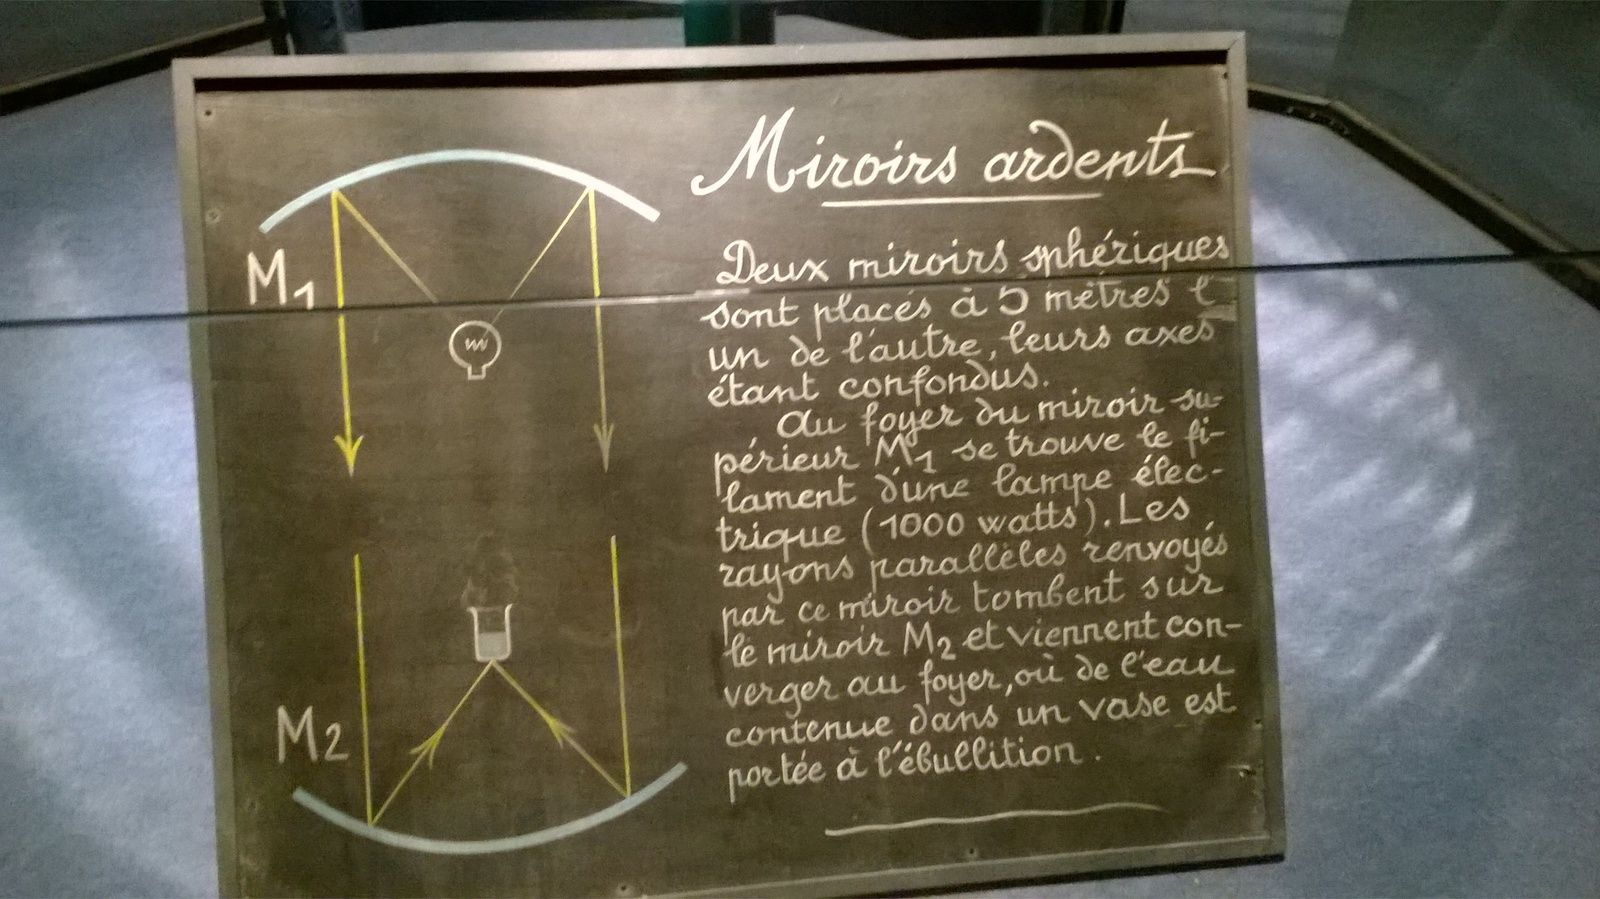 Miroirs ardents
Deux miroirs sphériques
sont placés à 5 mètres l'
un de l'autre, leurs axes
étant confondus.
Au foyer du miroir su-
périeur M1 se trouve le fi-
lament d'une lampe élec-
trique (1000 watts). Les
rayons parallèles renvoyés
par ce miroir tombent sur
le miroir M2 et viennent con-
verger au foyer, où de l'eau
contenue dans un vase est
portée à l'ébullition.
M1
M2